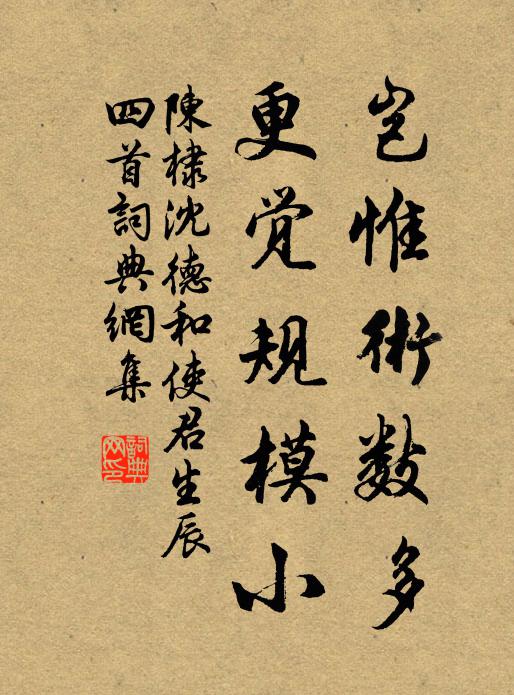 岂惟術数多
更觉规模小
陳棣沈德和使君生辰
四首詞典網集
詞典网印